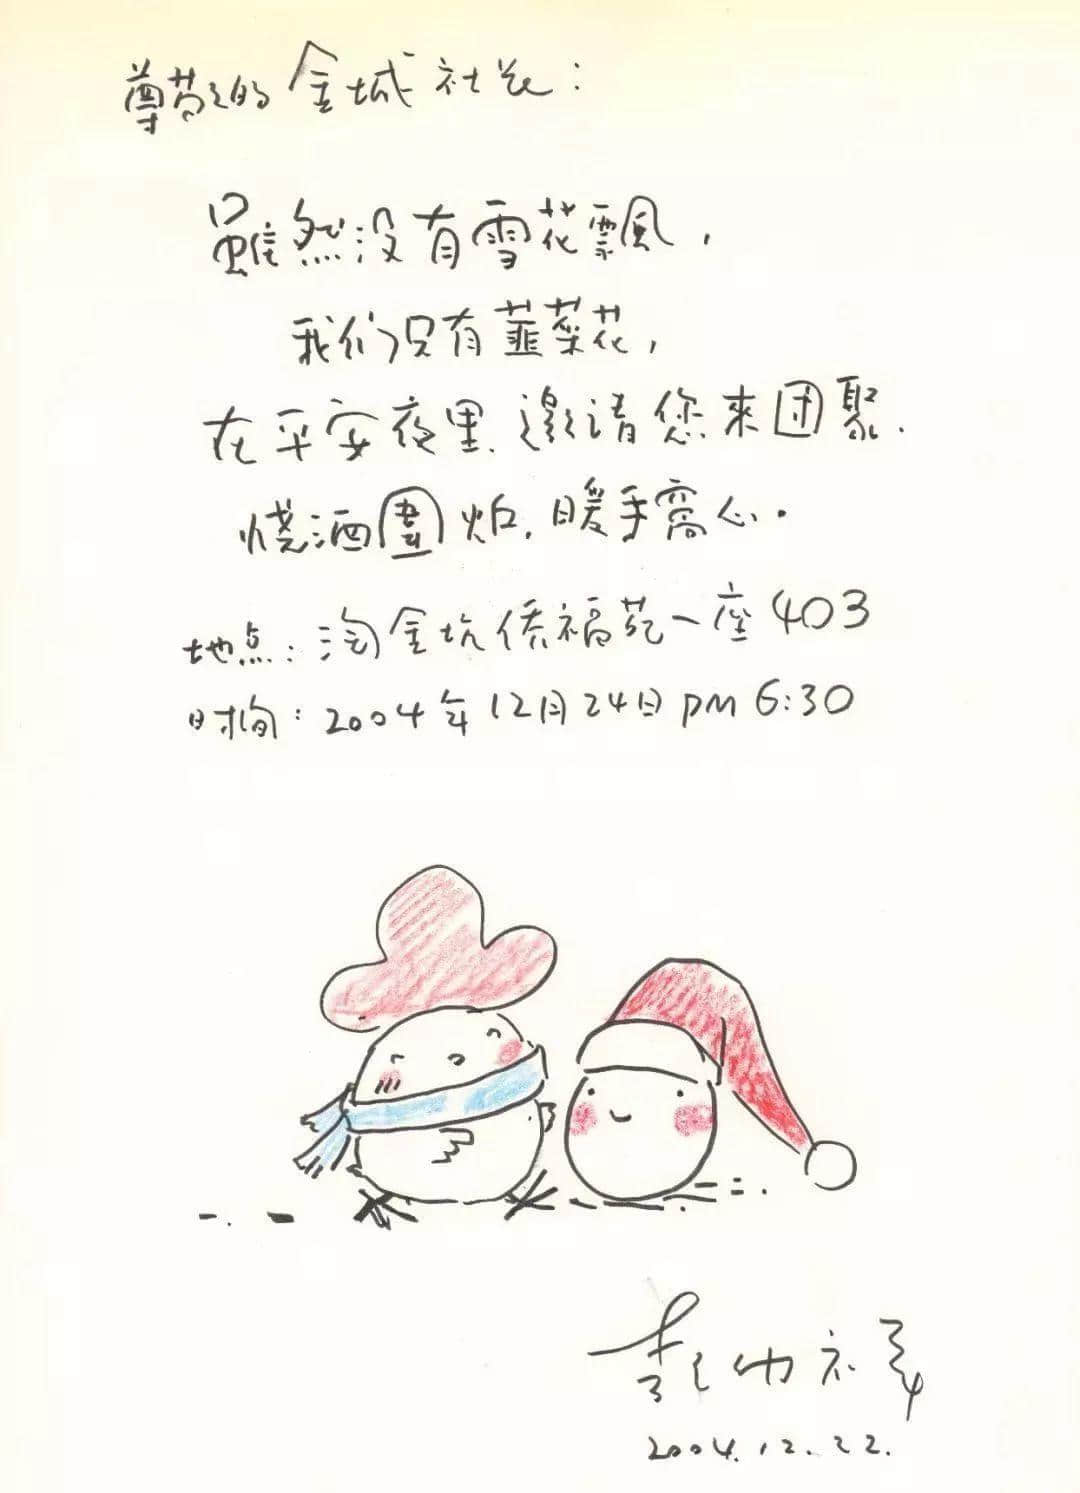 尊敬的金城社长：
雖然没有雪花飄，
我们只有韮菜花，
在平安夜里邀请您来团聚.
烧酒圍炉,暖手窩心.
地点：淘金坑侨福苑一座403
时间：2004年12月24日pm 6:30
2004.12.22.